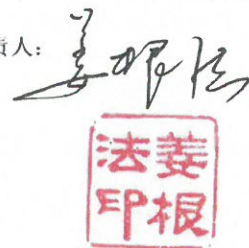 责人：姜根法
姜根
法印